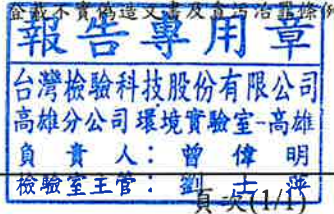 登載不實偽造文書及貪污治罪條例
報告專用章
台灣檢驗科技股份有限公司
高雄分公司環境實驗室-高雄
負責人：曾偉明
檢驗室主管：劉士萍
頁次(1/1)